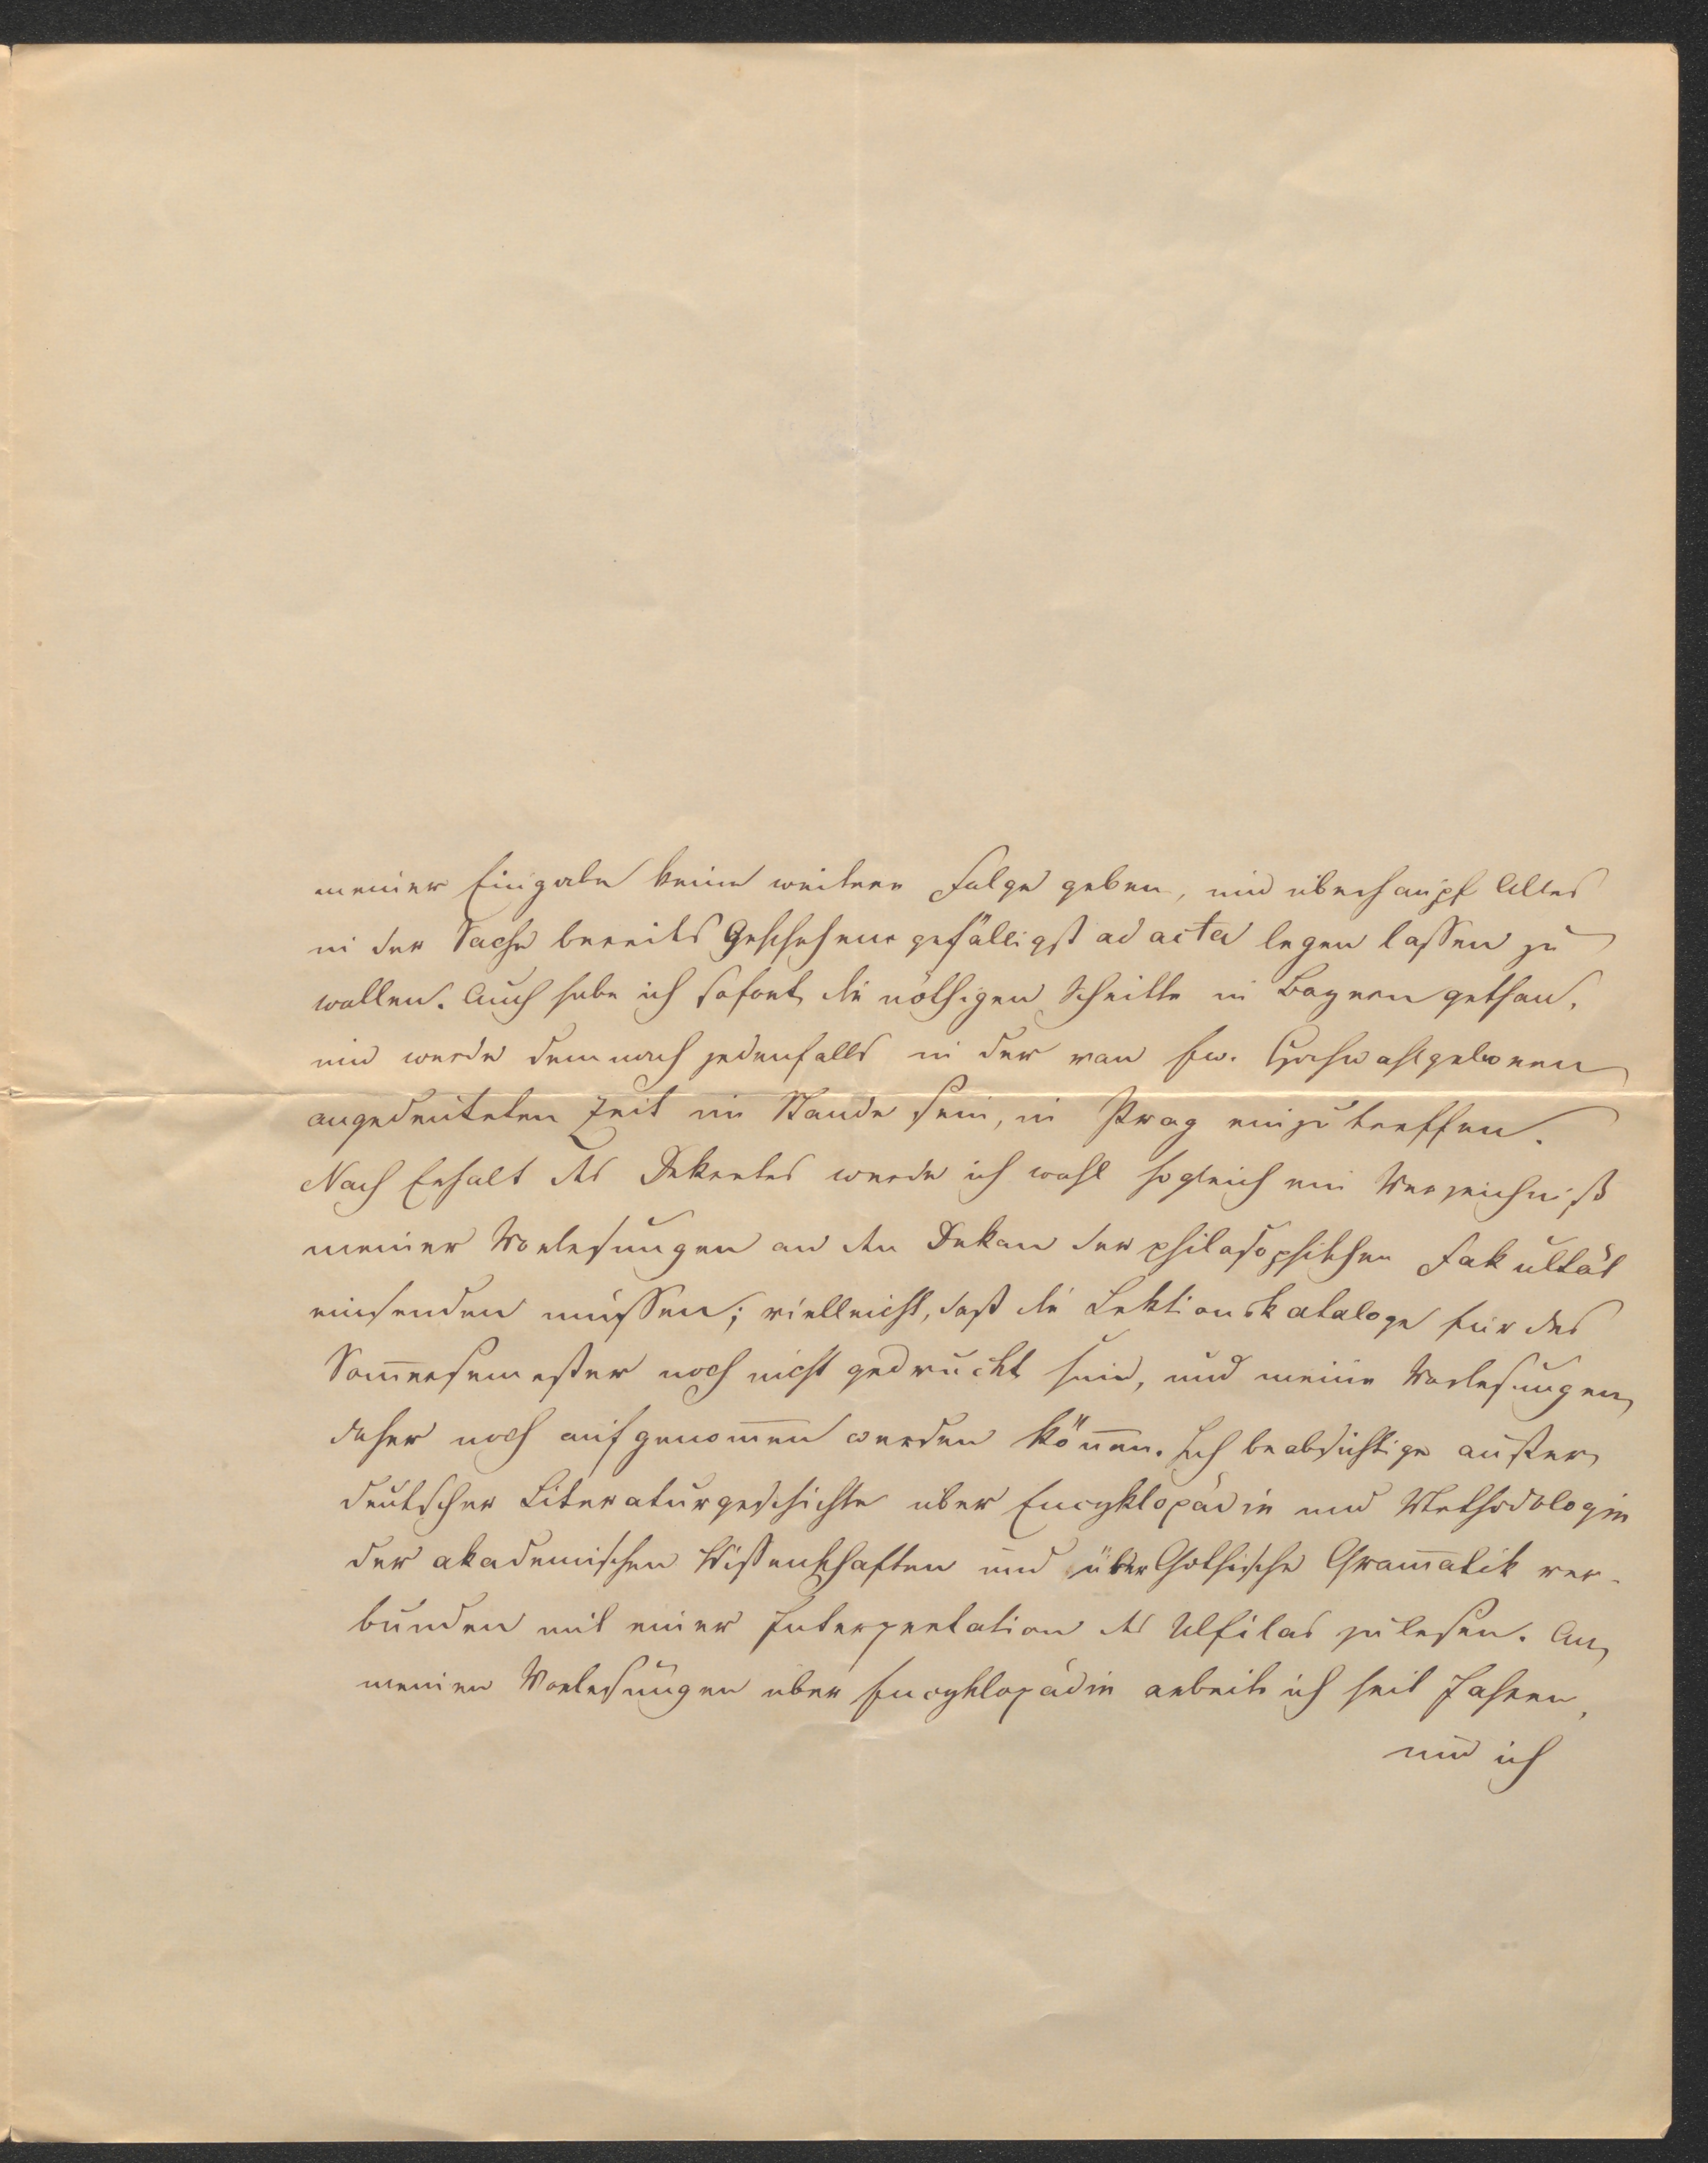 meiner Eingabe keine weitere Folge geben, und überhaupt Alles
in der Sache bereits Geschehene gefälligst ad acta legen lassen zu
wollen. Auch habe ich sofort die nöthigen Schritte in Bayern gethan,
und werde demnach jedenfalls in der von Ew. Hochwohlgeboren
angedeuteten Zeit im Stande sein, in Prag einzutreffen.
Nach Erhalt des Dekretes werde ich wohl sogleich ein Verzeichniß
meiner Vorlesungen an den Dekan der philosophischen Fakultät
einsenden müssen; vielleicht, daß die Lektionskataloge für das
Som̅ersemester noch nicht gedruckt sind, und meine Vorlesungen
daher noch aufgenom̅en werden kön̅en. Ich beabsichtige außer
deutscher Literaturgeschichte über Encyklopädie und Methodologie
der akademischen Wissenschaften und über Gothische Gram̅atik ver-
bunden mit einer Interpretation des Ulfilas zu lesen. An
meinen Vorlesungen über Encyklopädie arbeite ich seit Jahren,
und ich